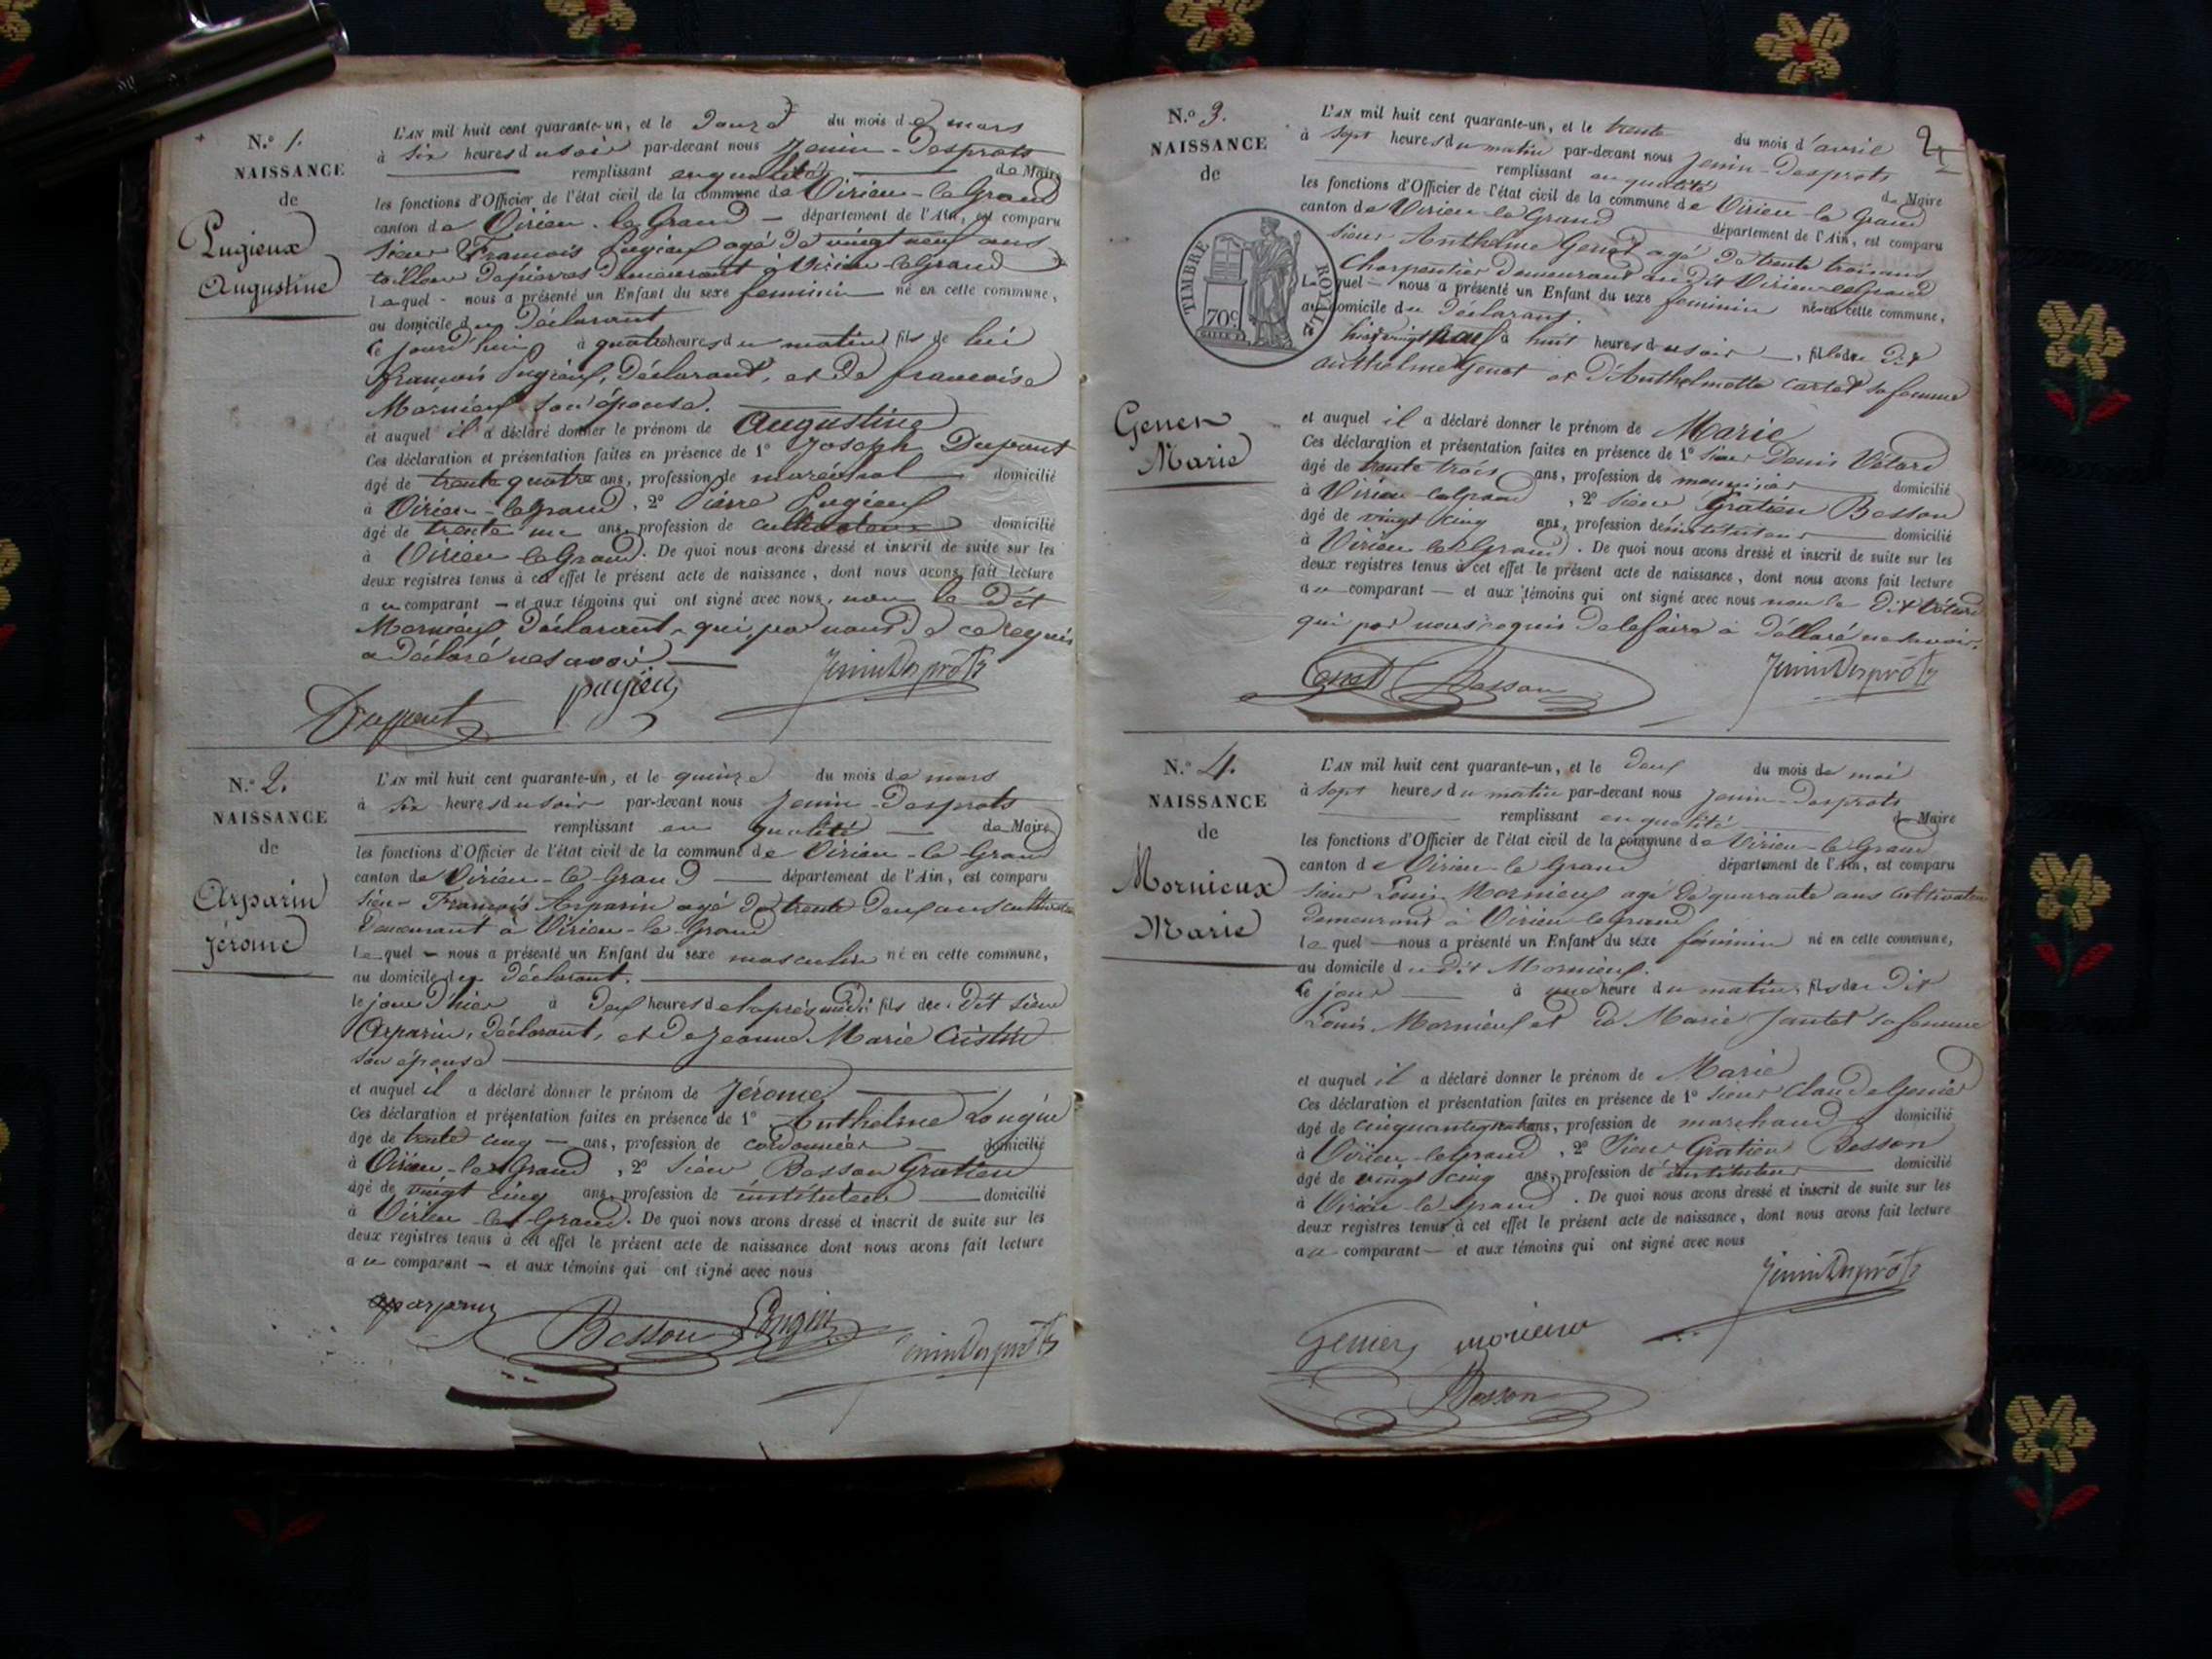 N.° 1.
NAISSANCE
de
Pugieux
Augustine
L'AN mil huit cent quarante-un, et le douze du mois de mars
à six heures du soir par-devant nous Jenin-Desprots
remplissant en qualité de Maire
les fonctions d'Officier de l'état civil de la commune de Virieu-le-Grand
canton de Virieu-le-Grand département de l'Ain, est comparu
Sieur François Pugieux agé de vingt neuf ans
tailleur de pierres demeurant à Virieu-le-Grand
lequel nous a présenté un Enfant du sexe feminin né en cette commune,
au domicile du Déclarant
ce jourd'hui à quatre heures du matin fils de lui
françois Pugieux, Déclarant, et de francoise
Mornieux son épouse.
et auquel il a déclaré donner le prénom de Augustine
Ces déclaration et présentation faites en présence de 1° Joseph Dupont
âgé de trente quatre ans, profession de maréchal domicilié
à Virieu-le-grand, 2° Pierre Pugieux
âgé de trente un ans, profession de cultivateur domicilié
à Virieu le Grand. De quoi nous avons dressé et inscrit de suite sur les
deux registres tenus à cet effet le présent acte de naissance, dont nous avons fait lecture
au comparant et aux témoins qui ont signé avec nous, non le Dit
Mornieux Déclarant, qui par nous de ce requis
a déclaré ne savoir.
Dupont pugieux JeninDesprots
N.° 2.
NAISSANCE
de
Arparin
Jérome
L'AN mil huit cent quarante-un, et le quinze du mois de mars
à six heures du soir par-devant nous Jenin-Desprots
remplissant en qualité de Maire
les fonctions d'Officier de l'état civil de la commune de Virieu-le-Grand
canton de Virieu-le-Grand département de l'Ain, est comparu
Sieur François Arparin agé de trente deux ans cultivateur
Demeurant à Virieu-le-Grand
lequel nous a présenté un Enfant du sexe masculin né en cette commune,
au domicile du Déclarant.
le jour d'hier à deux heures de l'après midi fils de Dit Sieur
Arparin, Déclarant, et de Jeanne Marie Cristin
son épouse
et auquel il a déclaré donner le prénom de Jérome
Ces déclaration et présentation faites en présence de 1° Anthelme Longin
âgé de trente cinq ans, profession de cordonnier domicilié
à Virieu-le-Grand, 2° Sieur Besson Gratien
âgé de vingt cinq ans, profession de instituteur domicilié
à Virieu-le-Grand. De quoi nous avons dressé et inscrit de suite sur les
deux registres tenus à cet effet le présent acte de naissance dont nous avons fait lecture
au comparant et aux témoins qui ont signé avec nous
arparin Besson Longin JeninDesprots
2
N.° 3.
NAISSANCE
de
TIMBRE ROYAL
70c
Genet
Marie
L'AN mil huit cent quarante-un, et le trente du mois d'avril
à sept heures du matin par-devant nous Jenin-Desprots
remplissant en qualité de Maire
les fonctions d'Officier de l'état civil de la commune de Virieu-le-Grand
canton de Virieu-le-Grand département de l'Ain, est comparu
sieur Anthelme Genet agé de trente trois ans
Charpentier demeurant au dit Virieu-le-Grand
Lequel nous a présenté un Enfant du sexe feminin né en cette commune,
au domicile du Déclarant.
hier vingt neuf à huit heures du soir, fils du Dit
Anthelme Genet et d'Anthelmette Cartet sa femme
et auquel il a déclaré donner le prénom de Marie
Ces déclaration et présentation faites en présence de 1° Sieur Denis Vétard
âgé de trente trois ans, profession de menuisier domicilié
à Virieu-le-Grand, 2° Sieur Gratien Besson
âgé de vingt cinq ans, profession de instituteur domicilié
à Virieu le Grand. De quoi nous avons dressé et inscrit de suite sur les
deux registres tenus à cet effet le présent acte de naissance, dont nous avons fait lecture
au comparant et aux témoins qui ont signé avec nous non le Dit Vétard
qui par nous requis de le faire à déclaré ne savoir.
Genet Besson JeninDesprots
N.° 4.
NAISSANCE
de
Mornieux
Marie
L'AN mil huit cent quarante-un, et le deux du mois de mai
à sept heures du matin par-devant nous Jenin-Desprots
remplissant en qualité de Maire
les fonctions d'Officier de l'état civil de la commune de Virieu-le-Grand
canton de Virieu-le-Grand département de l'Ain, est comparu
Sieur Louis Mornieux agé de quarante ans Cultivateur
demeurant à Virieu-le-Grand
lequel nous a présenté un Enfant du sexe féminin né en cette commune,
au domicile du Dit Mornieux.
Ce jour à une heure du matin, fils du Dit
Louis Mornieux et de Marie Jantet sa femme
et auquel il a déclaré donner le prénom de Marie
Ces déclaration et présentation faites en présence de 1° Sieur Claude Genier
âgé de cinquante quatre ans, profession de marchand domicilié
à Virieu-le-Grand, 2° Sieur Gratien Besson
âgé de vingt cinq ans, profession de instituteur domicilié
à Virieu-le-Grand. De quoi nous avons dressé et inscrit de suite sur les
deux registres tenus à cet effet le présent acte de naissance, dont nous avons fait lecture
au comparant et aux témoins qui ont signé avec nous
JeninDesprots
Genier mornieux
Besson